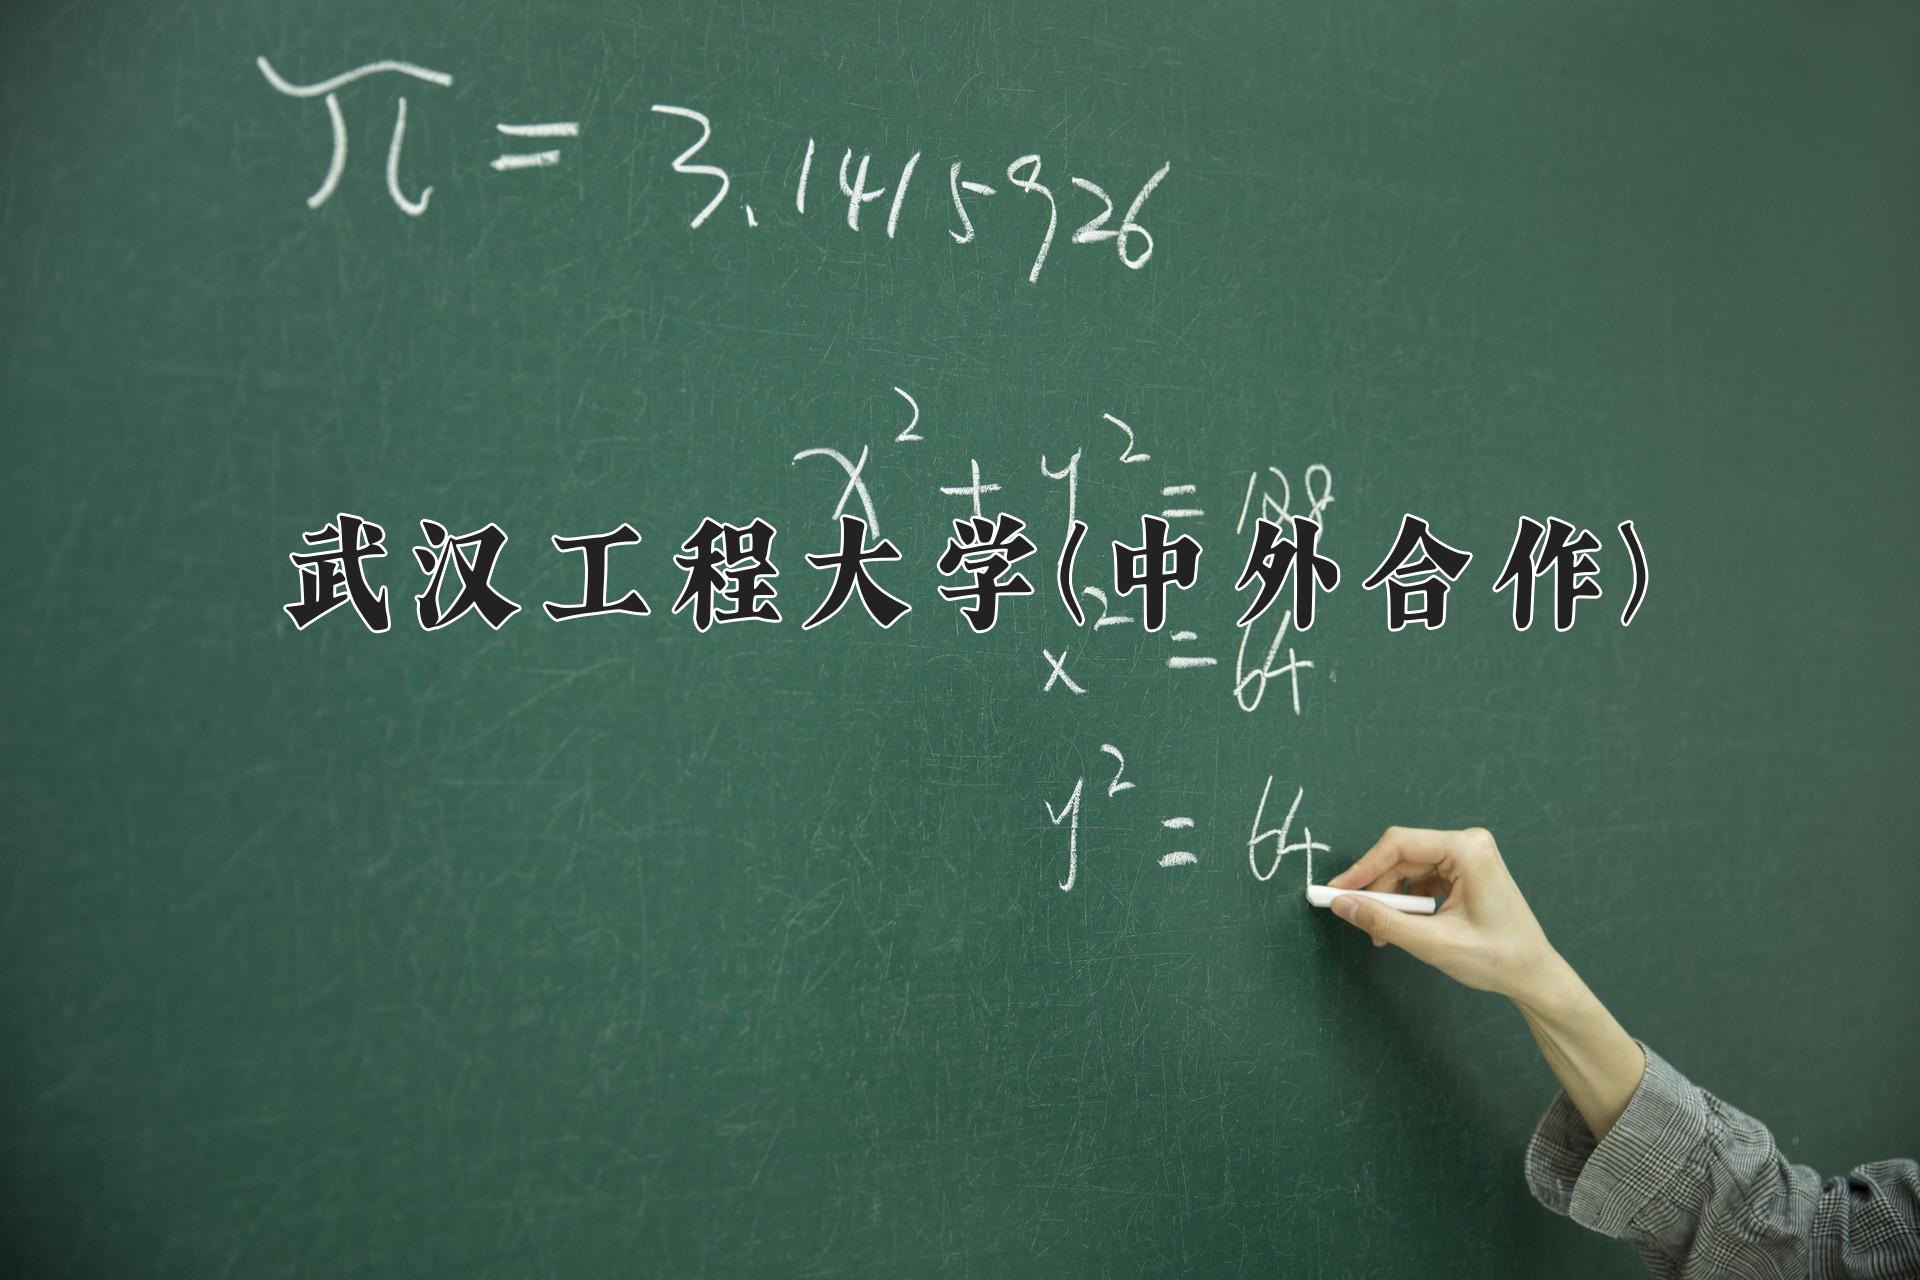 π = 3.1415926
x² + y² = 128
武汉工程大学(中外合作)
x² = 64
y² = 64